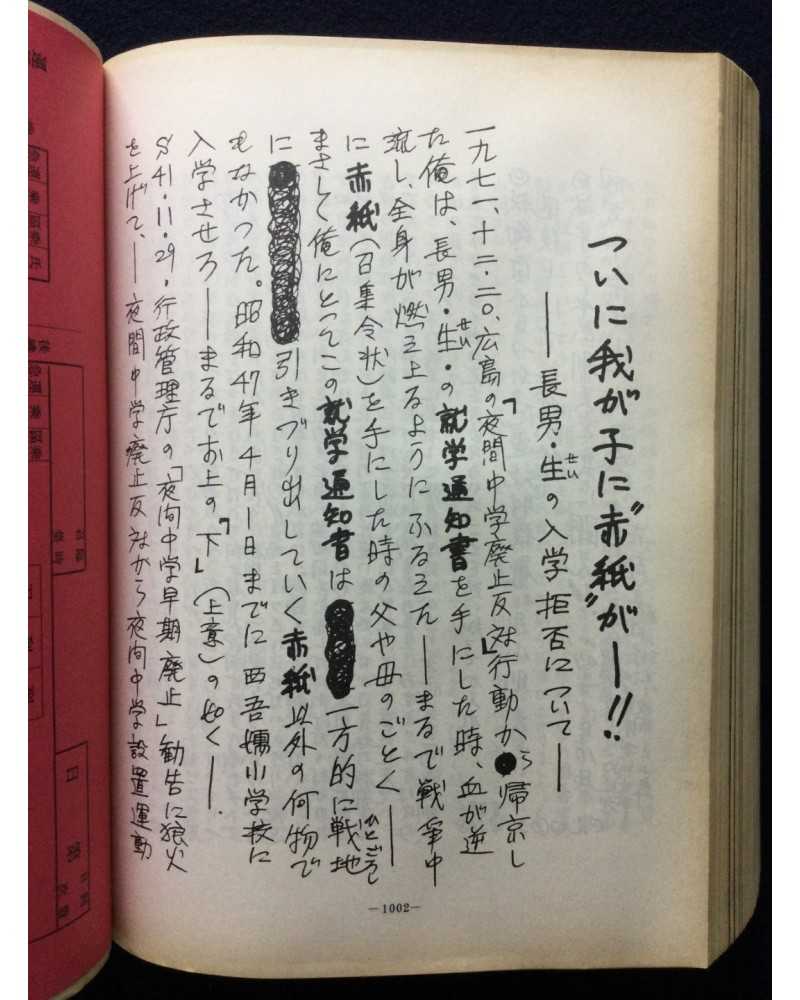 ついに我が子に"赤紙"がー!!
――長男・生の入学拒否について――
せい
一九七一、十二・二〇、広島の「夜間中学廃止反対」行動から帰京し
た俺は、長男・生・の就学通知書を手にした時、血が逆
せい
流し、全身が燃え上るようにふるえた――まるで戦争中
に赤紙(召集令状)を手にした時の父や母のごとく――
まさしく俺にとってこの就学通知書は 一方的に戦地
ひとごろし
に 引きづり出していく赤紙以外の何物で
もなかった。昭和47年4月1日までに西吾嬬小学校に
入学させろ――まるでお上の「下」(上意)の如く――.
S41・11・29・行政管理庁の「夜間中学早期廃止」勧告に狼火
を上げて、――夜間中学廃止反対から夜間中学設置運動
―1002―